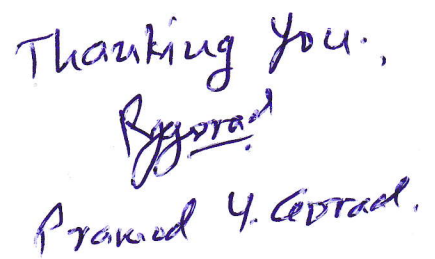 Thanking you.,
Pygorad
Pramod Y. Gorad.